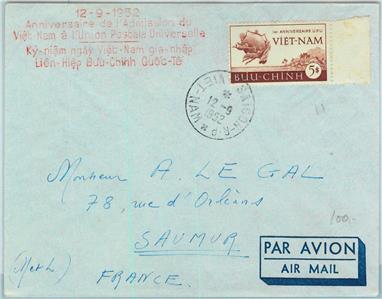 12-9-1952
Anniversaire de l'Admission du
Viêt-Nam à l'Union Postale Universelle
Kỷ-niệm ngày Việt-Nam gia-nhập
Liên-Hiệp Bưu-Chính Quốc-Tế
1er ANNIVERSAIRE U.P.U
VIÊT-NAM
BƯU-CHÍNH 5$
SAIGON-R.P.
12-9
1952
VIET-NAM
Monsieur A. LE GAL
78, rue d'Orléans
SAUMUR
FRANCE.
100,-
PAR AVION
AIR MAIL